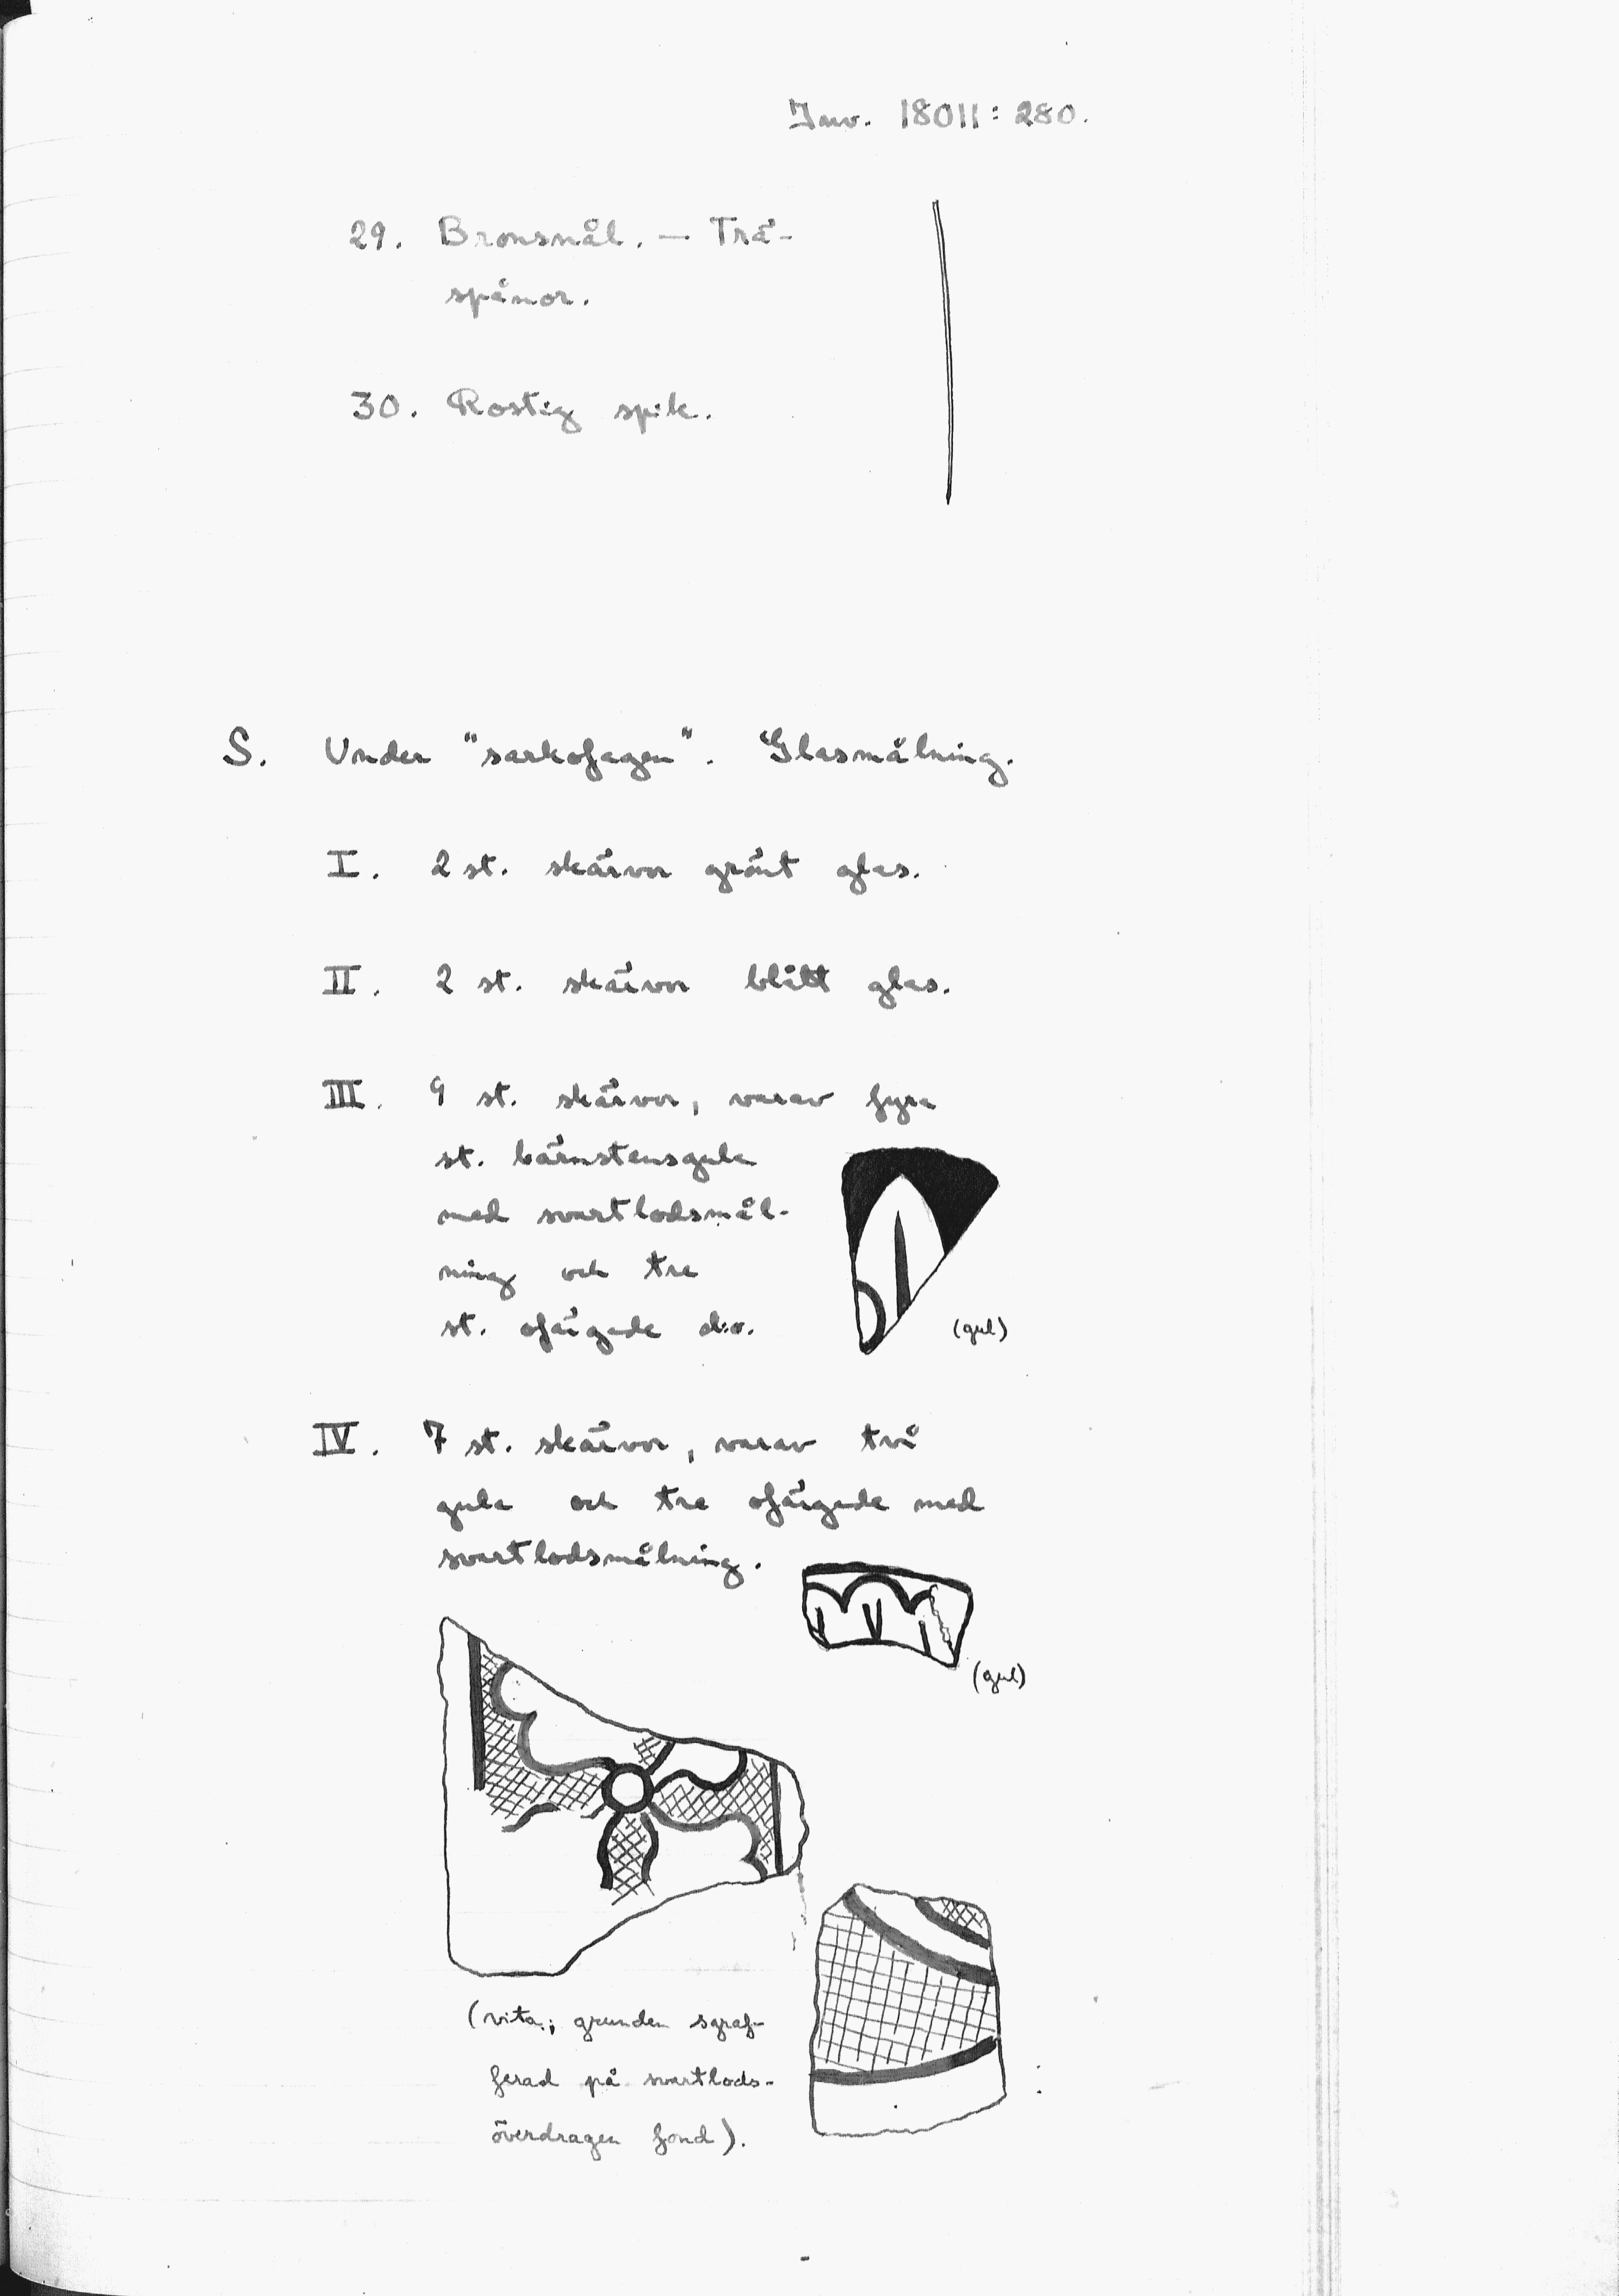 Inv. 18011:280.
29. Bronsnål. — Trä-
spånor.
30. Rostig spik.
S. Under "sarkofagen". Glasmålning.
I. 2 st. skärvor grönt glas.
II. 2 st. skärvor blått glas.
III. 9 st. skärvor, varav fyra
st. bärnstensgula
med svartlodsmål-
ning och tre
st. ofärgade d:o.
(gul)
IV. 7 st. skärvor, varav två
gula och tre ofärgade med
svartlodsmålning.
(gul)
(vita; grunden sgraf-
ferad på svartlods-
överdragen fond).